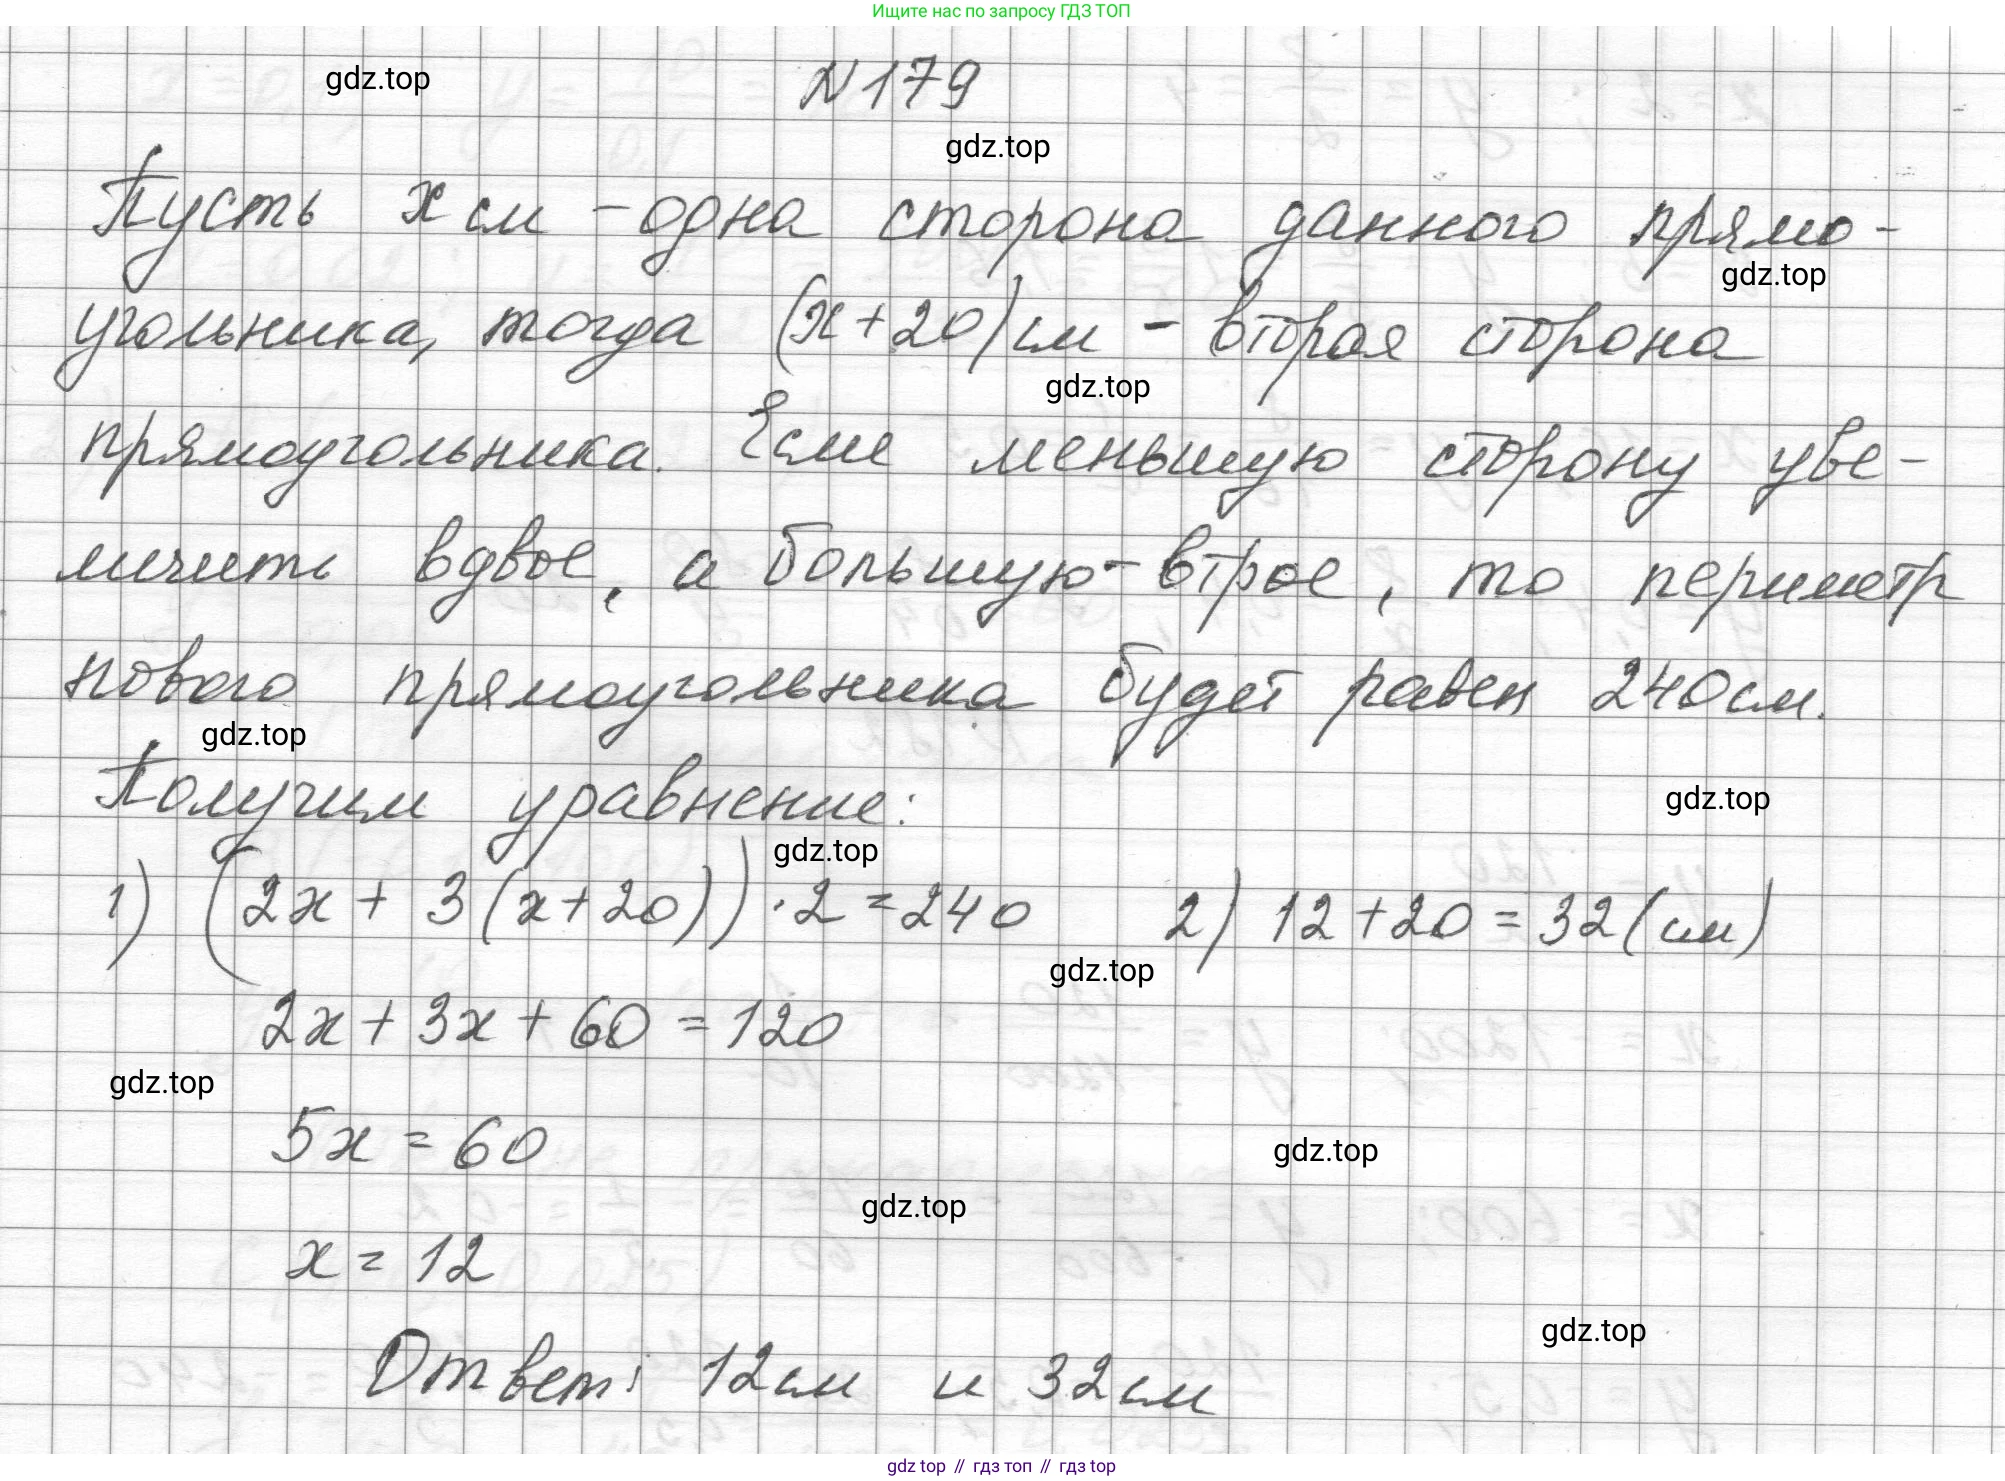 Ищите нас по запросу ГДЗ ТОП
gdz.top
N 179
gdz.top
Пусть x см - одна сторона данного прямо-
gdz.top
угольника, тогда (x+20) см - вторая сторона
gdz.top
прямоугольника. Если меньшую сторону уве-
личить вдвое, а большую - втрое, то периметр
нового прямоугольника будет равен 240 см.
gdz.top
Получим уравнение:
gdz.top
gdz.top
1) (2x + 3(x+20)) · 2 = 240 2) 12 + 20 = 32 (см)
gdz.top
2x + 3x + 60 = 120
gdz.top
5x = 60
gdz.top
gdz.top
x = 12
gdz.top
Ответ: 12 см и 32 см
gdz top // гдз топ // гдз top